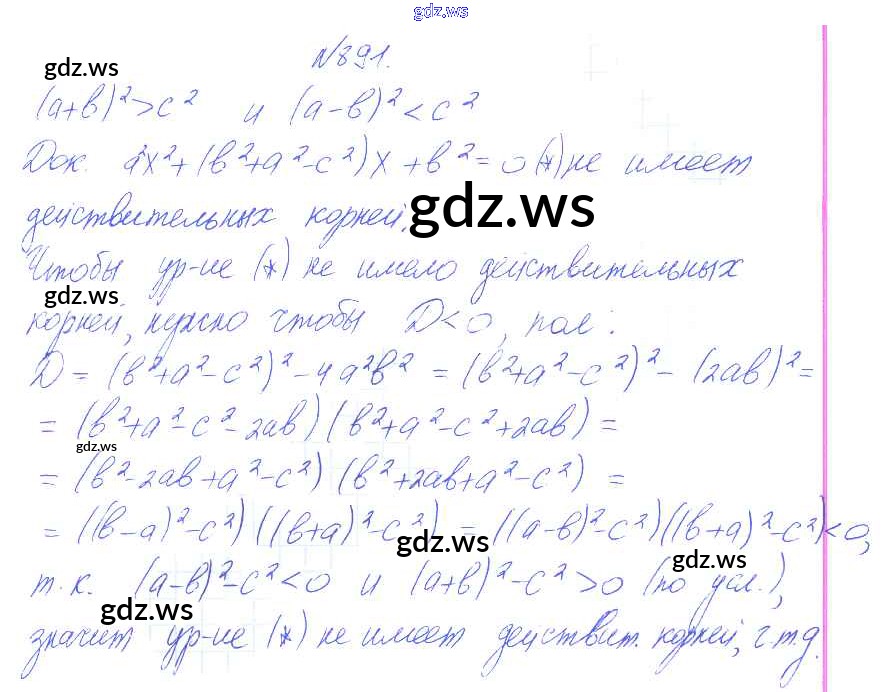 gdz.ws
№891.
gdz.ws
(a+b)²>c² и (a-b)²<c²
Док. a²x²+(b²+a²-c²)x+b²=0 (*) не имеет
действительных корней. gdz.ws
Чтобы ур-ие (*) не имело действительных
gdz.ws
корней, нужно чтобы D<0, пол:
D = (b²+a²-c²)²-4a²b² = (b²+a²-c²)²-(2ab)²=
= (b²+a²-c²-2ab)(b²+a²-c²+2ab)=
gdz.ws
= (b²-2ab+a²-c²)(b²+2ab+a²-c²) =
= ((b-a)²-c²)((b+a)²-c²) = ((a-b)²-c²)((b+a)²-c²)<0,
gdz.ws
gdz.ws
т.к. (a-b)²-c²<0 и (a+b)²-c²>0 (по усл.),
gdz.ws
значит ур-ие (*) не имеет действит. корней, ч.т.д.